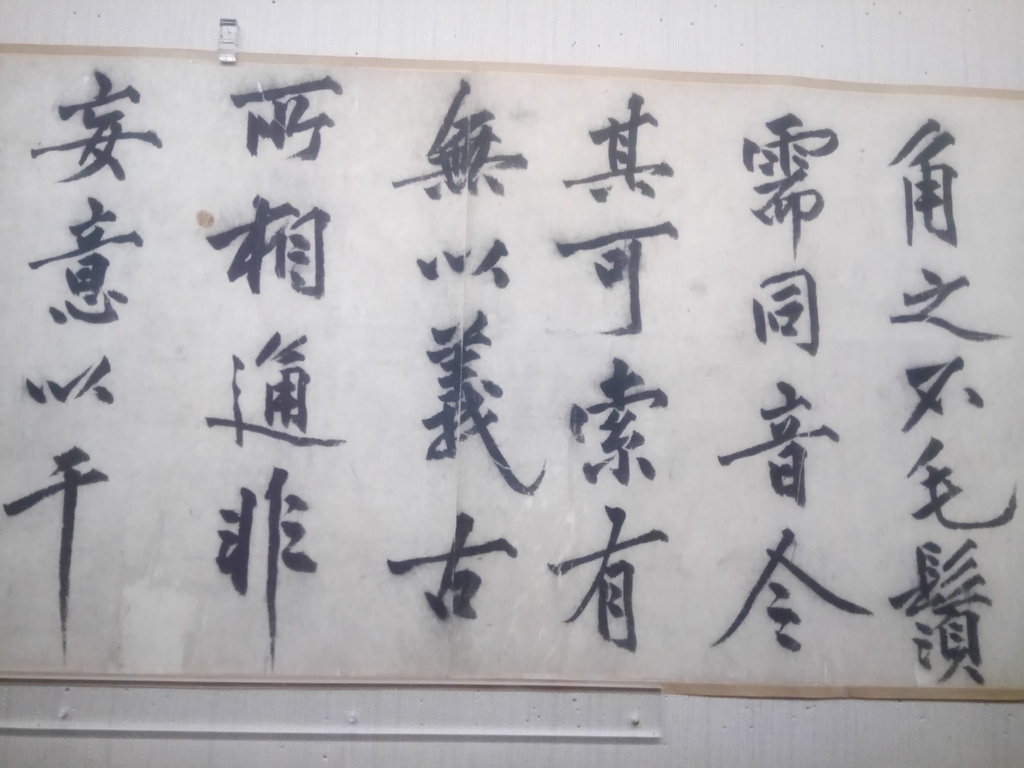 角之不毛鬚
需同音令
其可索有
無以義古
所相通非
妄意以干